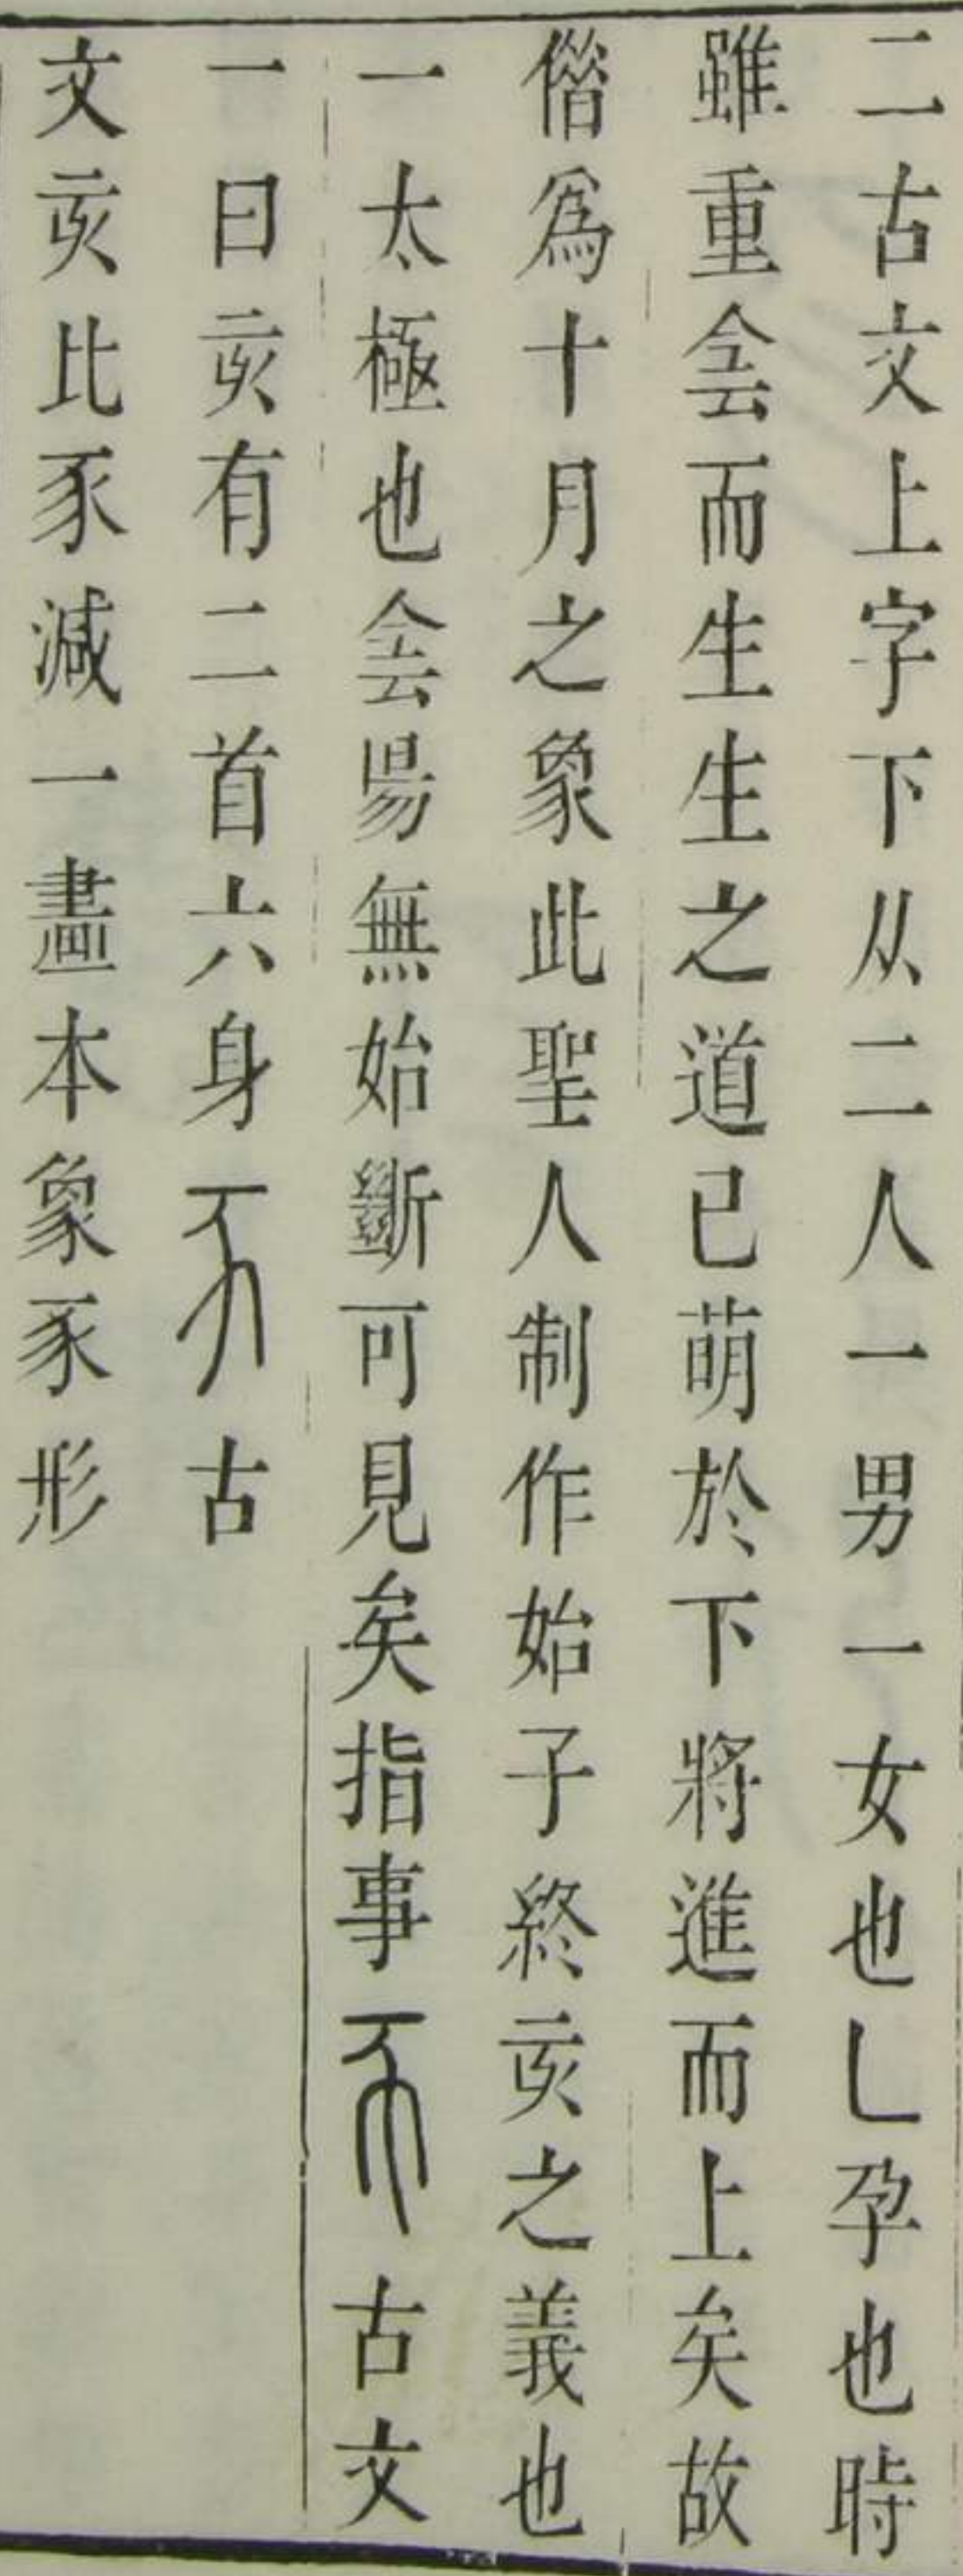 二古文上字下从二人一男一女也乚孕也時
雖重侌而生生之道已萌於下將進而上矣故
偺爲十月之象此聖人制作始子終亥之義也
一太極也侌昜無始斷可見矣指事古文
一曰亥有二首六身古
文亥比豕減一畫本象豕形